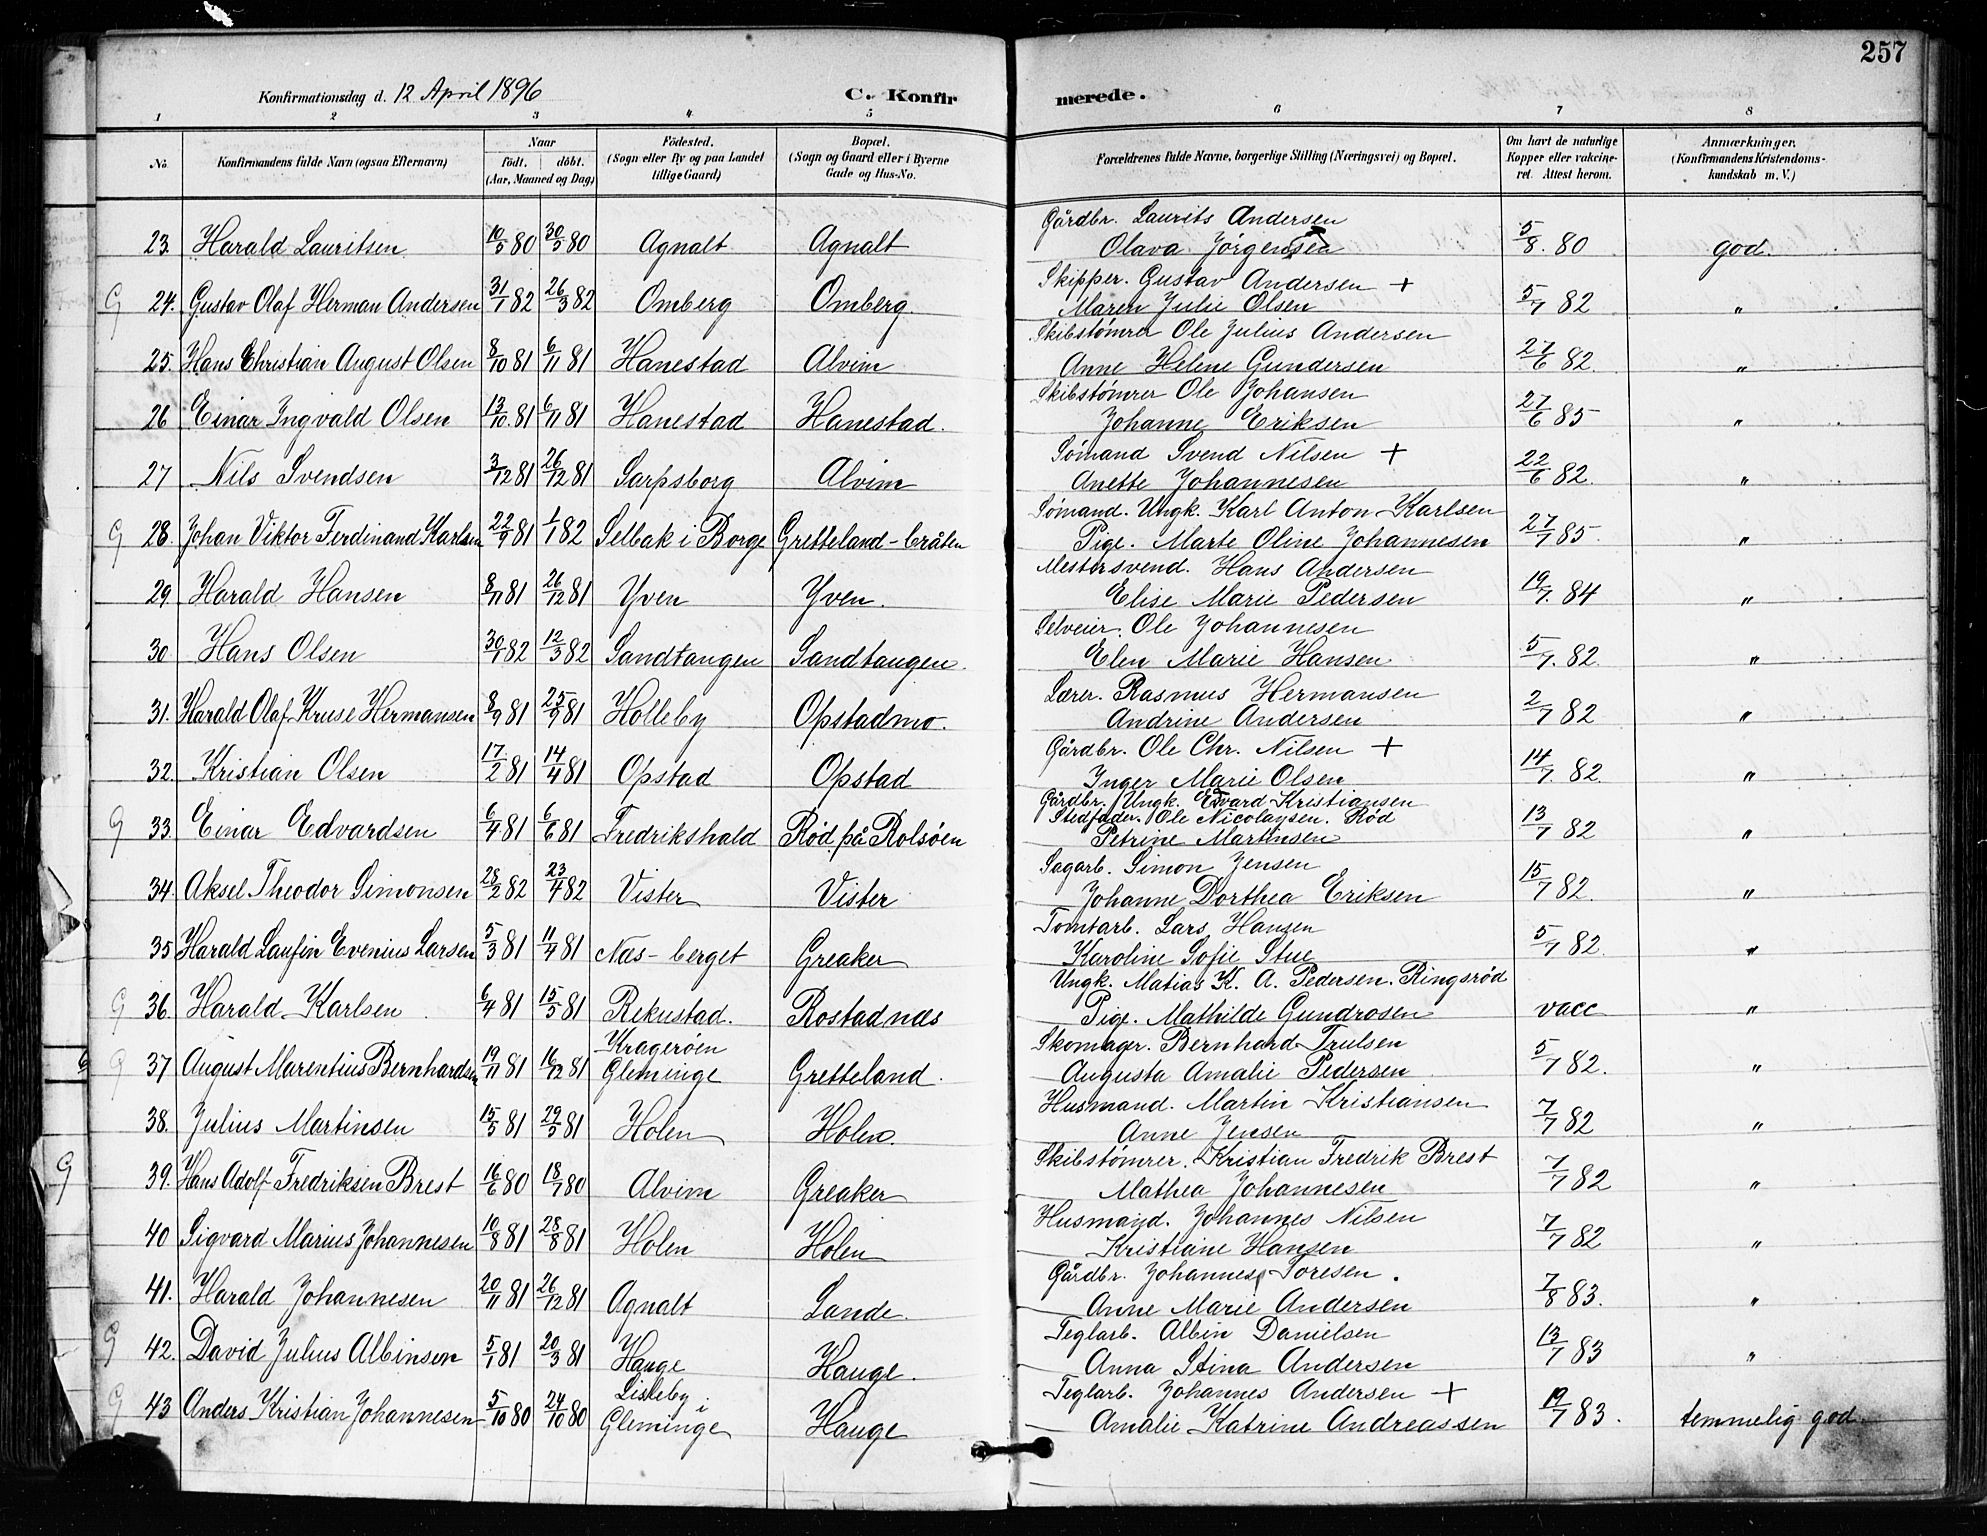 257
Konfirmationsdag d. 12 April 1896
C. Konfirmerede.
1 2 3 4 5 6 7 8
No. Konfirmandens fulde Navn (ogsaa Efternavn) Naar født. døbt. (Aar, Maaned og Dag) Födested. (Sogn eller By og paa Landet tillige Gaard) Bopæl. (Sogn og Gaard eller i Byerne Gade og Hus-No. Forældrenes fulde Navne, borgerlige Stilling (Næringsvei) og Bopæl. Om havt de naturlige Kopper eller vakcineret. Attest herom. Anmærkninger. (Konfirmandens Kristendomskundskab m. V.)
23. Harald Lauritsen 10/5 80 30/5 80 Agnalt Agnalt Gårdbr. Laurits Andersen
Olava Jörgensen 5/8. 80 god.
G 24. Gustav Olaf Herman Andersen 31/1 82 26/3 82 Omberg Omberg. Skipper. Gustav Andersen +
Maren Julie Olsen 5/7 82 "
25. Hans Christian August Olsen 8/10 81 6/11 81 Hanestad Alvim Skibstømrer Ole Julius Andersen
Anne Helene Gundersen 27/6 82. "
26 Einar Ingvald Olsen 13/10. 81 6/11 81 Hanestad Hanestad. Skibstømrer Ole Johansen
Johanne Eriksen 27/6 85 "
27 Nils Svendsen 3/12 81 26/12 81 Sarpsborg Alvim Sømand Svend Nilsen +
Anette Johannesen 22/6 82. "
G 28. Johan Viktor Ferdinand Karlsen 22/9 81 1/1 82 Selbak i Borge Gretteland-bråten Sømand. Ungk. Karl Anton Karlsen
Pige. Marte Oline Johannesen 27/7 85. "
29. Harald Hansen 8/11 81 26/12 81 Yven Yven. Mestersvend. Hans Andersen
Elise Marie Pedersen 19/7. 84 "
30 Hans Olsen 30/1 82 12/3 82 Sandtangen Sandtangen. Selveier. Ole Johannesen
Elen Marie Hansen 5/7. 82. "
31. Harald Olaf Kruse Hermansen 8/9 81 25/9 81 Holleby Opstadmo. Lærer. Rasmus Hermansen
Andrine Andersen 2/7 82 "
32. Kristian Olsen 17/2 81 14/4 81 Opstad Opstad Gårdbr. Ole Chr. Nilsen +
Inger Marie Olsen 14/7. 82. "
G 33. Einar Edvardsen 6/4 81 6/6 81 Fredrikshald Rød på Rolsöen Gårdbr. / Ungk. Edvard Kristiansen
Stedfader. Ole Nicolaysen. Rød
Petrine Martinsen 13/7 82 "
34. Aksel Theodor Simonsen 28/2 82 23/4 82 Vister Vister Sagarb. Simon Jensen
Johanne Dorthea Eriksen 15/7 82. "
35 Harald Laufin Evenius Larsen 5/3 81 11/4 81 Næs-berget Greaker Tomtarb. Lars Hansen
Karoline Sofie Stue 5/7 82. "
G 36. Harald Karlsen 6/4 81 15/5 81 Rekustad. Rostadnæs Ungk. Matias K. A. Pedersen. Ringsrød
Pige. Mathilde Gundrosen vacc "
G 37 August Marentius Bernhardsen 19/11 81 16/12 81 Kragerøen Gleminge Gretteland. Skomager. Bernhard Trulsen
Augusta Amalie Pedersen 5/7 82. "
38. Julius Martinsen 15/5 81 29/5 81 Holen Holen. Husmand. Martin Kristiansen
Anne Jensen 7/7 82 "
G 39. Hans Adolf Fredriksen Brest 16/6 80 18/7 80 Alvim Greaker Skibstømrer. Kristian Fredrik Brest
Mathea Johannesen 7/7 82 "
40 Sigvard Marius Johannesen 10/8 81 28/8 81 Holen Holen Husmand. Johannes Nilsen
Kristiane Hansen 7/7 82 "
41. Harald Johannesen 20/11 81 26/12 81 Agnalt Sande. Gårdbr. Johannes Toresen.
Anne Marie Andersen 7/8 83. "
G 42. David Julius Albinsen 5/1 81 20/3 81 Hauge Hauge. Teglarb. Albin Danielsen
Anna Stina Andersen 13/7 83 "
G 43 Anders Kristian Johannesen 5/10 80 24/10 80 Lisleby i Gleminge Hauge Teglarb. Johannes Andersen +
Amalie Katrine Andreassen 19/7 83. temmelig god